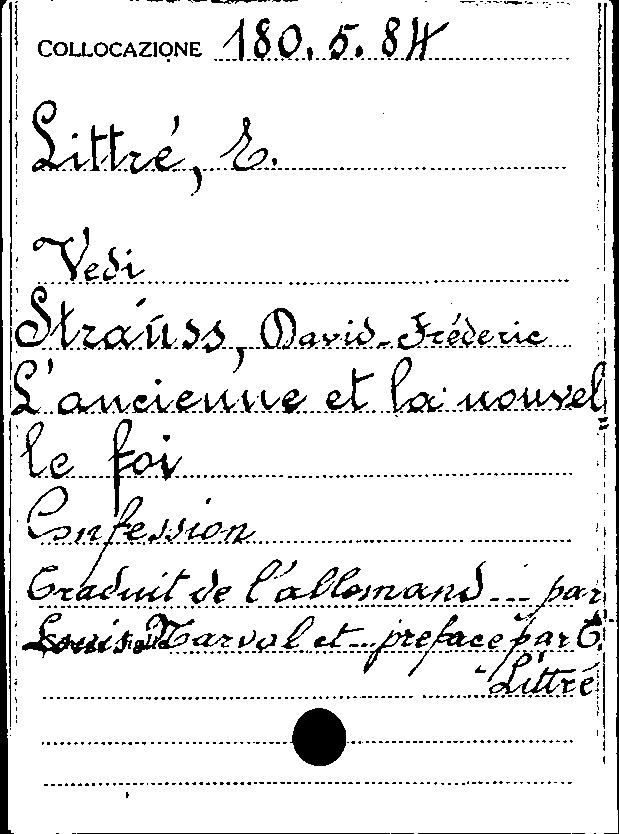 COLLOCAZIONE 180.5.84
Littré, E.
Vedi
Strauss, David-Fréderic
L'ancienne et la nouvel=
le foi
Confession
Traduit de l'allemand ... par
Louis Narval et ... preface par E.
Littré